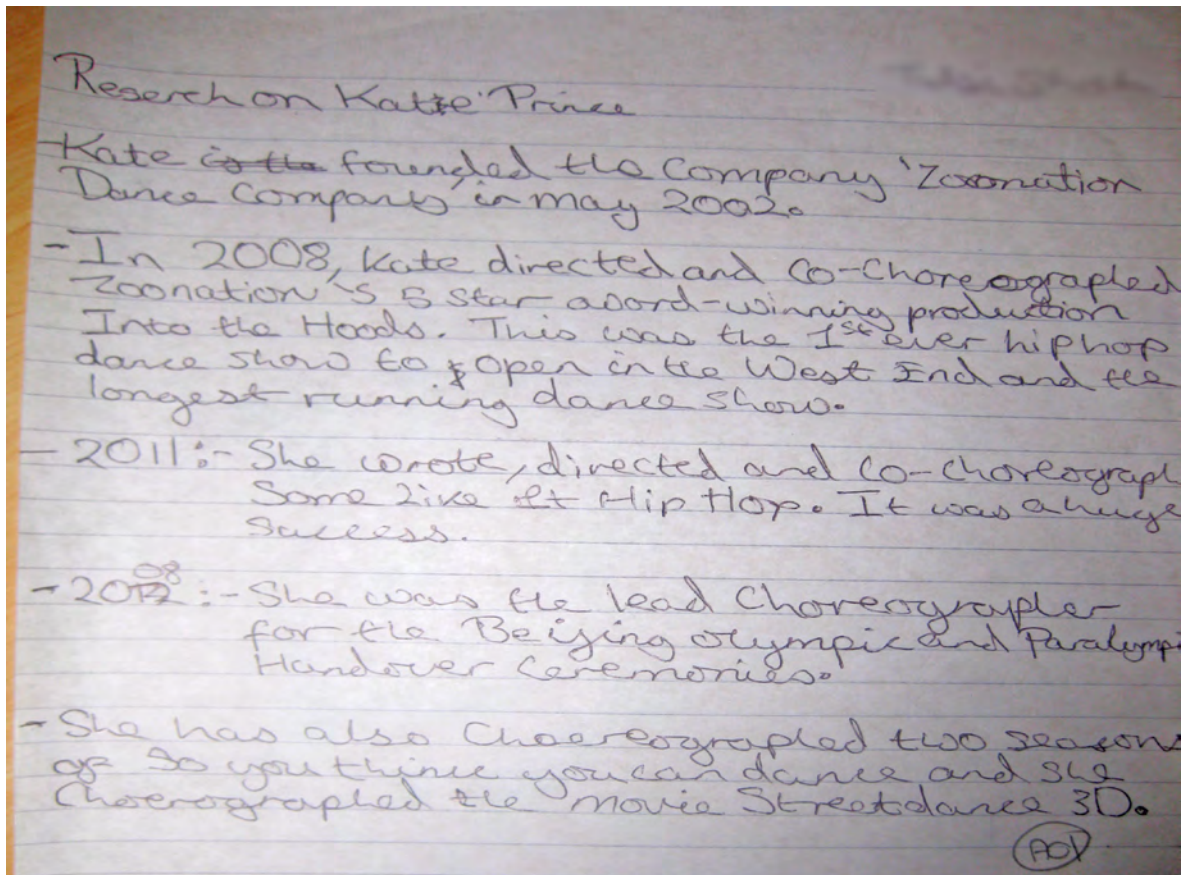 Reserch on Katie Prince
-Kate is the founded the Company 'Zoonation
Dance Company in may 2002.
-In 2008, Kate directed and Co-Choreographed
Zoonation's 5 star award-winning production
Into the Hoods. This was the 1st ever hiphop
dance show to open in the West End and the
longest running dance show.
- 2011:- She wrote, directed and co-choreograph
Some Like it Hip Hop. It was a huge
success.
- 2008:- She was the lead Choreographer
for the Beijing olympic and Paralympi
Handover Ceremonies.
- She has also Choereographed two seasons
of So you think you can dance and she
Choerographed the movie Streetdance 3D.
AO1